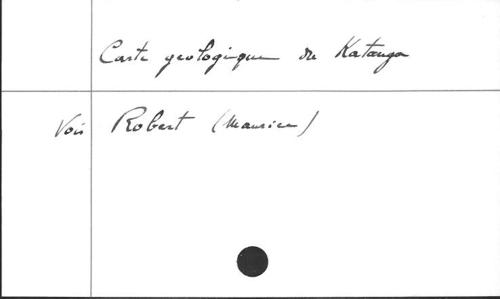 Carte geologique du Katanga
Voir Robert (Maurice)